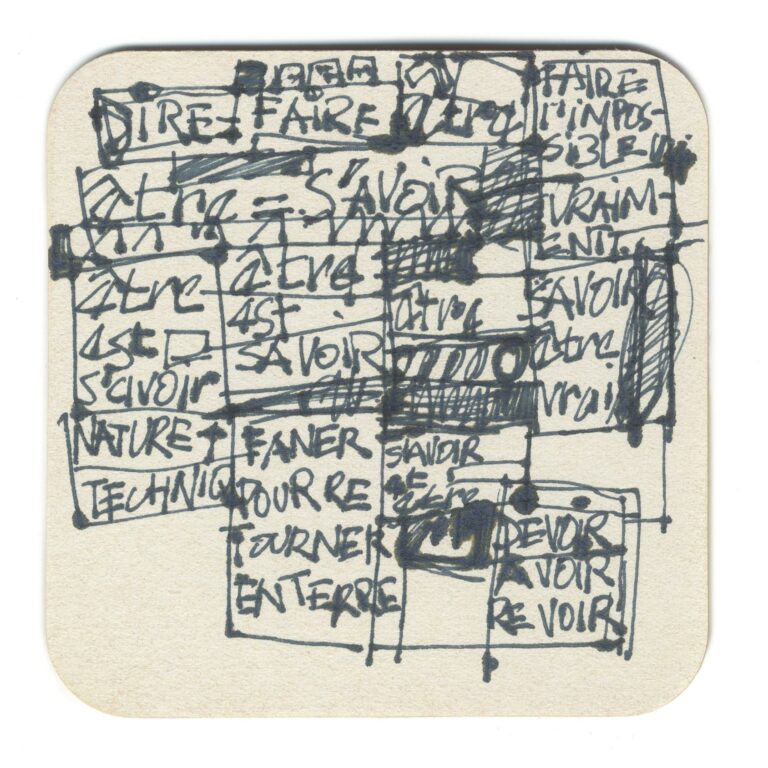 DIRE- FAIRE être
FAIRE
L'IMPOS-
SIBLE
être = S'AVOIR
VRAIM-
ENT.
être
est
s'avoir
être
est
SAVOIR
être
SAVOIR
être
vrai
NATURE +
TECHNIQ
FANER
POUR RE
TOURNER
EN TERRE
S'AVOIR
être
DEVOIR
AVOIR
REVOIR